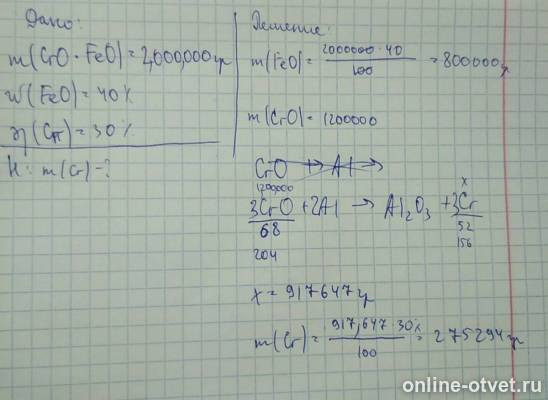 Дано:
m(CrO · FeO) = 2,000,000 гр
w(FeO) = 40%
η(Cr) = 30%
Н: m(Cr) - ?
Решение:
m(FeO) = 2000000 · 40 / 100 = 800000 гр
m(CrO) = 1200000
CrO + Al →
1200,000 x
3CrO + 2Al → Al₂O₃ + 3Cr
68 52
204 156
x = 917647 гр
m(Cr) = 917,647 · 30% / 100 = 275294 гр
online-otvet.ru